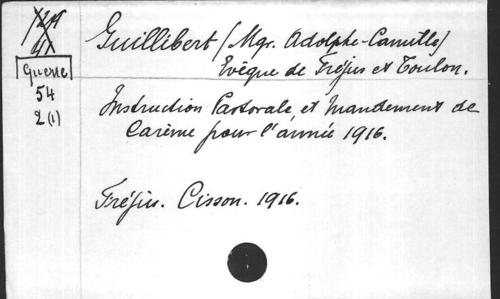 Guerre
54
2(1)
Guillibert (Mgr. Adolphe-Camille)
Evêque de Fréjus et Toulon.
Instruction Pastorale, et Mandement de
Carême pour l'année 1916.
Fréjus. Cisson. 1916.